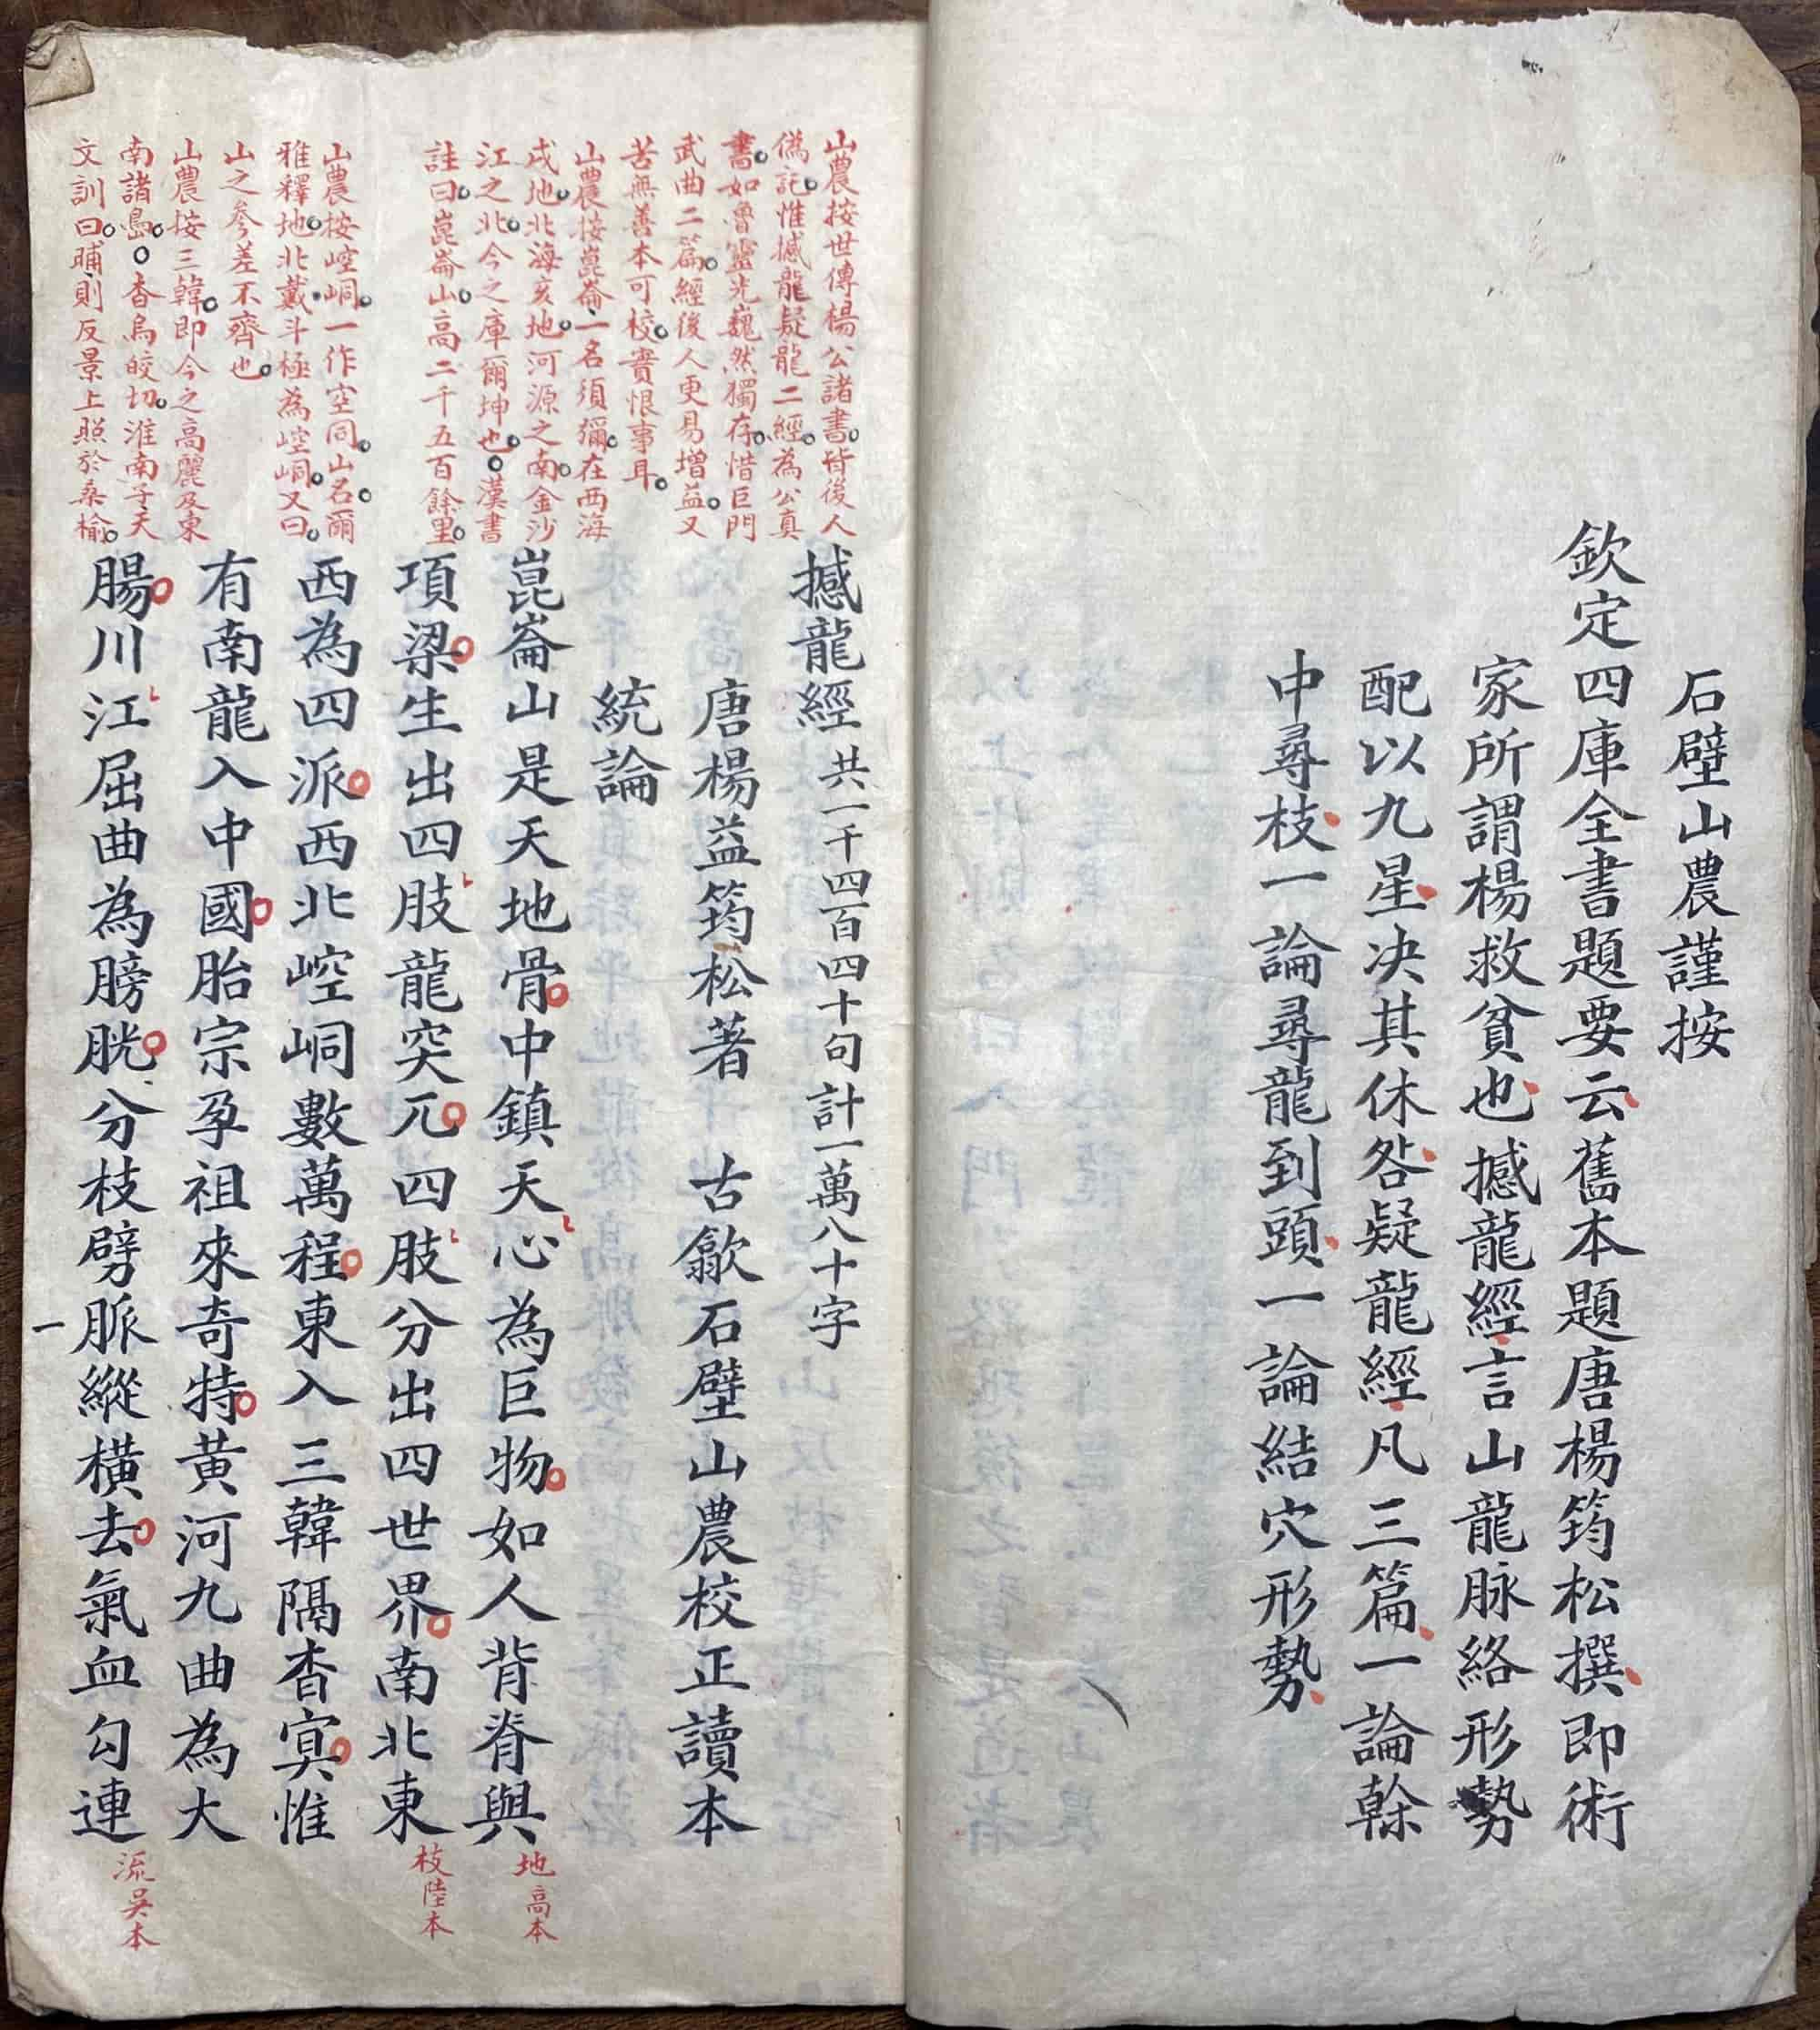 石壁山農謹按
欽定四庫全書題要云舊本題唐楊筠松撰即術
家所謂楊救貧也撼龍經言山龍脉絡形勢
配以九星决其休咎疑龍經凡三篇一論榦
中尋枝一論尋龍到頭一論結穴形勢
山農按世傳楊公諸書皆後人
偽託惟撼龍疑龍二經為公真
書如魯靈光巍然獨存惜巨門
武曲二篇經後人更易增益又
苦無善本可校實恨事耳
山農按崑崙一名須彌在西海
戌地北海亥地河源之南金沙
江之北今之庫爾坤也漢書
註曰崑崙山高二千五百餘里
山農按崆峒一作空同山名爾
雅釋地北戴斗極為崆峒又曰
山之參差不齊也
山農按三韓即今之高麗及東
南諸島杳烏皎切淮南子天
文訓曰晡則反景上照於桑榆
撼龍經共一千四百四十句計一萬八十字
唐楊益筠松著 古歙石壁山農校正讀本
統論
崑崙山是天地骨中鎮天心為巨物如人背脊與
項梁生出四肢龍突兀四肢分出四世界南北東
西為四派西北崆峒數萬程東入三韓隔杳㝠惟
有南龍入中國胎宗孕祖來奇特黃河九曲為大
腸川江屈曲為膀胱分枝劈脈縱橫去氣血勾連
地高本
枝陸本
流吳本
一